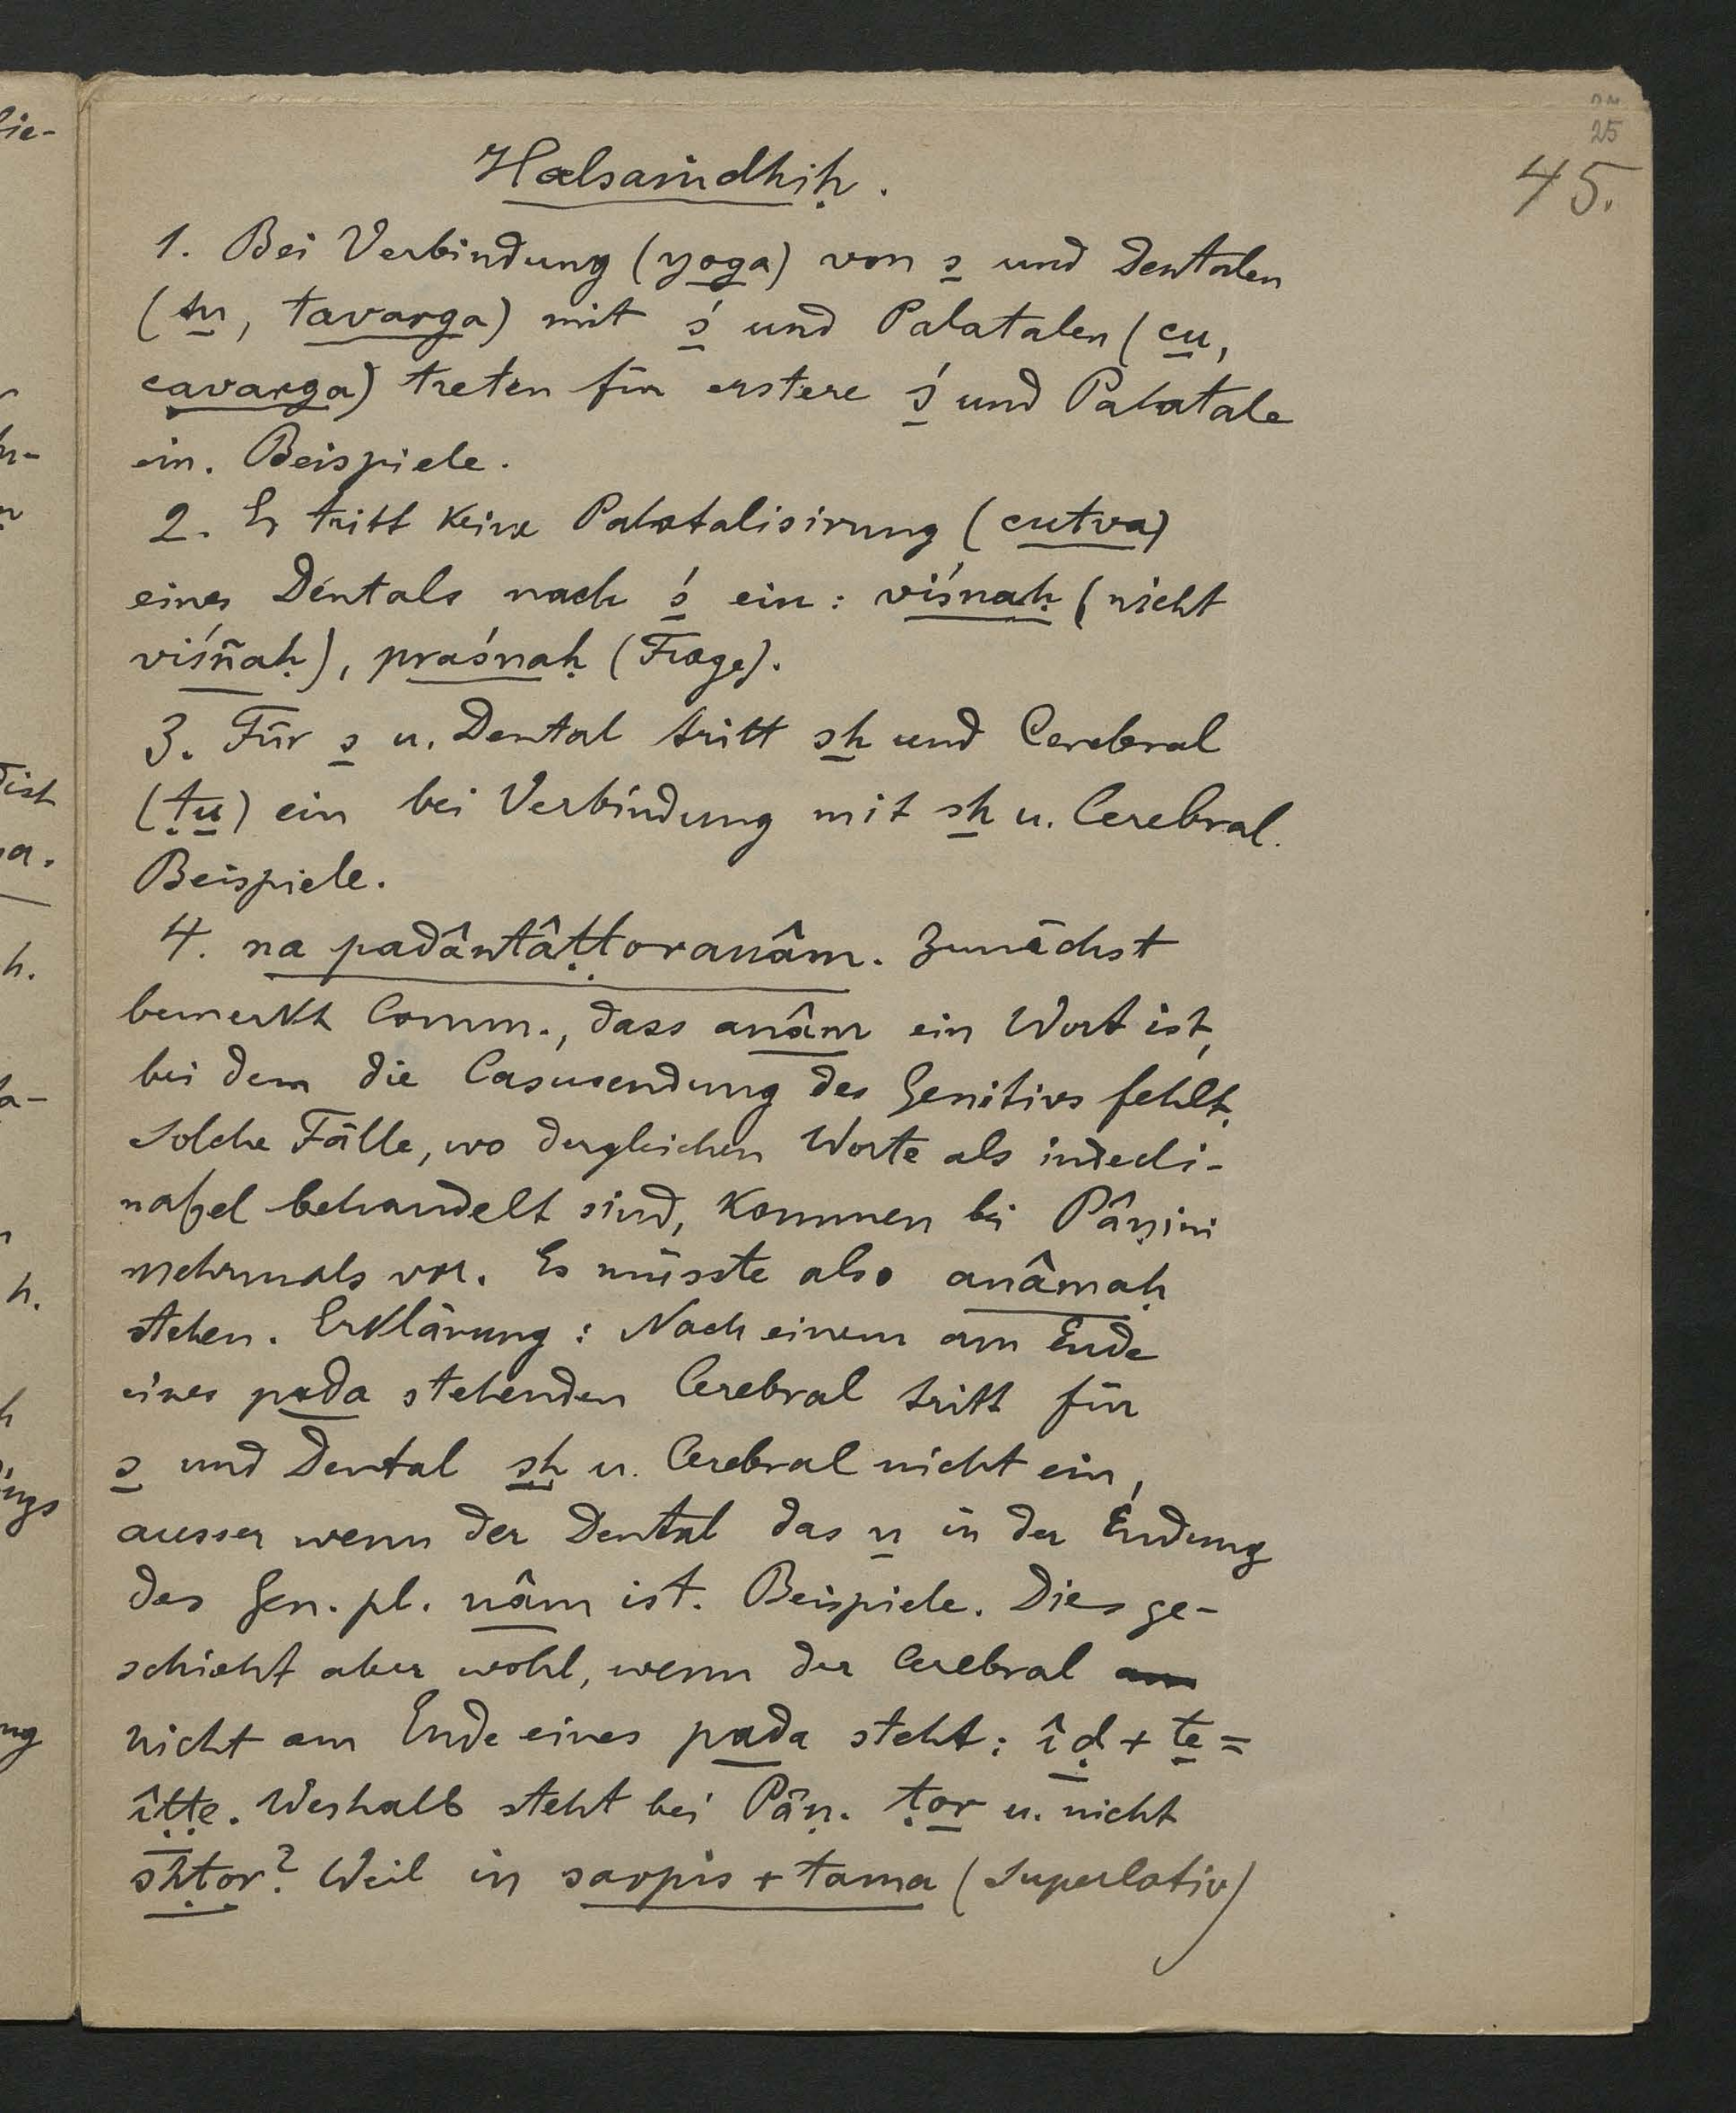 25
45.
Halsaṁdhiḥ.
1. Bei Verbindung (yoga) von s und Dentalen
(tu, tavarga) mit ś und Palatalen (cu,
cavarga) treten für erstere ś und Palatale
ein. Beispiele.
2. Es tritt keine Palatalisirung (cutva)
eines Dentals nach ś ein: viśnaḥ (nicht
viśñaḥ), praśnaḥ (Frage).
3. Für s u. Dental tritt sh und Cerebral
(ṭu) ein bei Verbindung mit sh u. Cerebral.
Beispiele.
4. na padântâṭṭoranâm. Zunächst
bemerkt Comm., dass anâm ein Wort ist,
bei dem die Casusendung des Genitivs fehlt.
Solche Fälle, wo dergleichen Worte als indecli-
nabel behandelt sind, kommen bei Pâṇini
mehrmals vor. Es müsste also anâmaḥ
stehen. Erklärung: Nach einem am Ende
eines pada stehenden Cerebral tritt für
s und Dental sh u. Cerebral nicht ein,
ausser wenn der Dental das n in der Endung
des Gen. pl. nâm ist. Beispiele. Dies ge-
schieht aber wohl, wenn der Cerebral am
nicht am Ende eines pada steht: îḍ + te =
îṭṭe. Weshalb steht bei Pâṇ. ṭor u. nicht
shṭor? Weil in sarpis + tama (Superlativ)